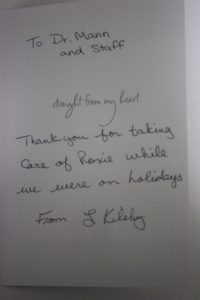 To Dr. Mann
and Staff
...straight from my heart.
Thank you for taking
Care of Roxie while
we were on holidays
From L Kilsby